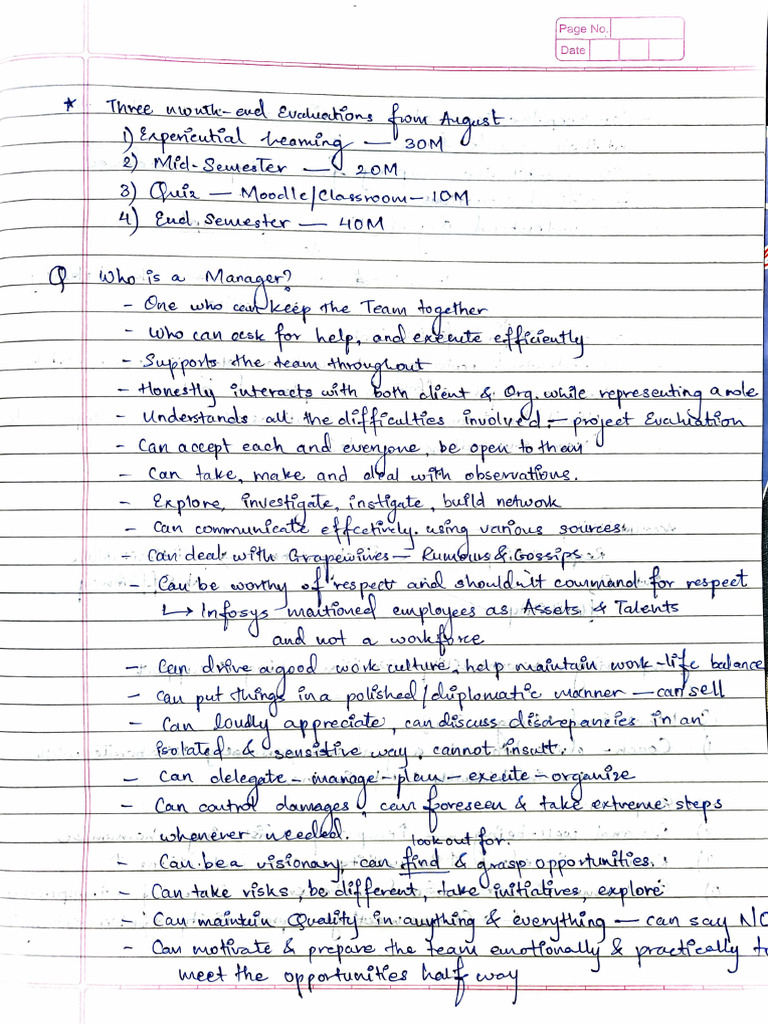 Page No.
Date
* Three month-end Evaluations from August
1) Experiential Learning — 30M
2) Mid-Semester — 20M
3) Quiz — Moodle/Classroom — 10M
4) End Semester — 40M
Q Who is a Manager?
- One who can keep the Team together
- Who can ask for help, and execute efficiently
- Supports the team throughout
- Honestly interacts with both client & Org. while representing a role
- Understands all the difficulties involved — project Evaluation
- Can accept each and everyone, be open to them
- Can take, make and deal with observations.
- Explore, investigate, instigate, build network
- Can communicate effectively using various sources
- Can deal with Grapewines — Rumours & Gossips.
- Can be worthy of respect and shouldn't command for respect
↳ Infosys mentioned employees as Assets & Talents
and not a workforce
- Can drive a good work culture, help maintain work-life balance
- Can put things in a polished/diplomatic manner — can sell
- Can loudly appreciate, can discuss discrepancies in an
isolated & sensitive way, cannot insult.
- Can delegate - manage - plan - execute - organize
- Can control damages, can foreseen & take extreme steps
whenever needed.
look out for.
- Can be a visionary, can find & grasp opportunities.
- Can take risks, be different, take initiatives, explore
- Can maintain Quality in anything & everything — can say NO
- Can motivate & prepare the team emotionally & practically to
meet the opportunities half way